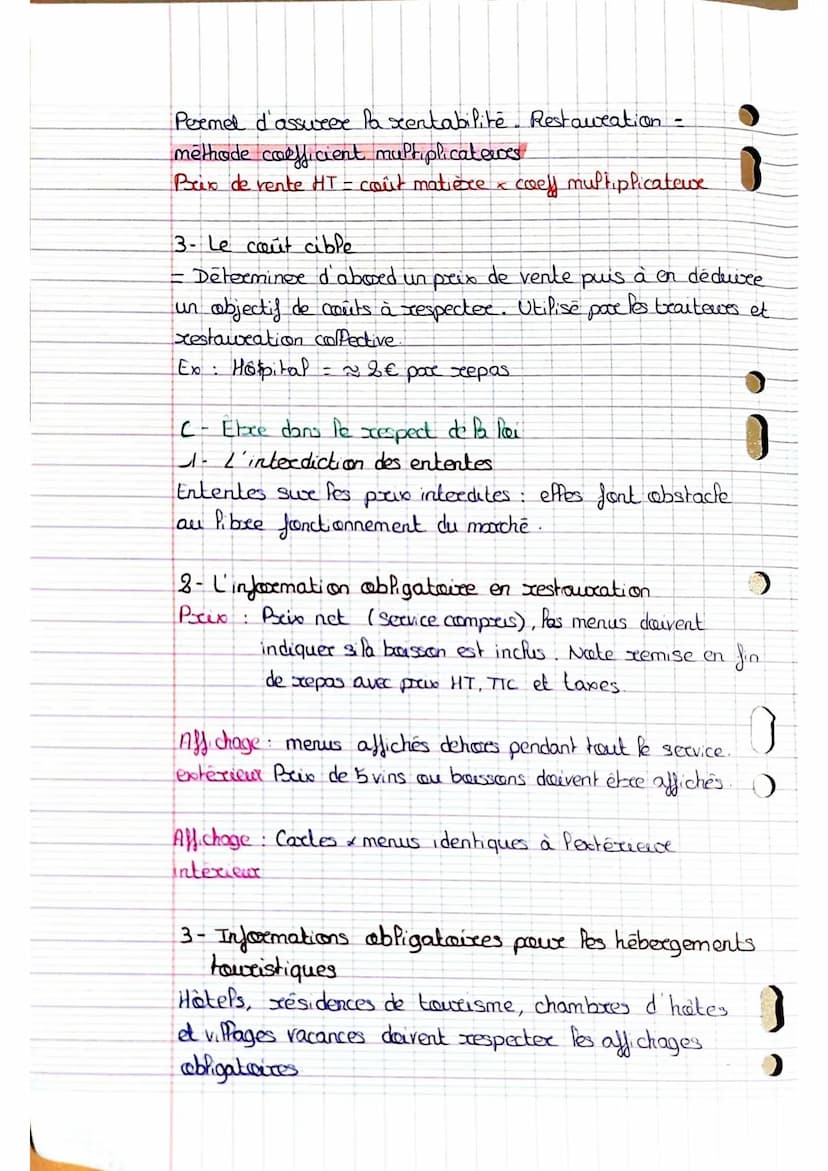 Permet d'assurer la rentabilité. Restauration =
méthode coefficient multiplicateurs
Prix de vente HT = coût matière x coeff multiplicateur
3- Le coût cible
= Déterminer d'abord un prix de vente puis à en déduire
un objectif de coûts à respecter. Utilisé par les traiteurs et
restauration collective.
Ex : Hôpital = ≈ 2€ par repas
C- Etre dans le respect de la loi
1- L'interdiction des ententes
Ententes sur les prix interdites : elles font obstacle
au libre fonctionnement du marché.
2- L'information obligatoire en restauration
Prix : Prix net (service compris), les menus doivent
indiquer si la boisson est inclus. Note remise en fin
de repas avec prix HT, TTC et taxes.
Affichage : menus affichés dehors pendant tout le service.
extérieur Prix de 5 vins ou boissons doivent être affichés.
Affichage : Cartes & menus identiques à l'extérieur
intérieur
3- Informations obligatoires pour les hébergements
touristiques
Hôtels, résidences de tourisme, chambres d'hôtes
et villages vacances doivent respecter les affichages
obligatoires